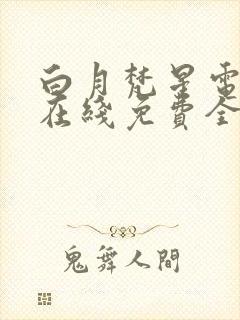 白月梵星電
在綫免費全
鬼舞人間